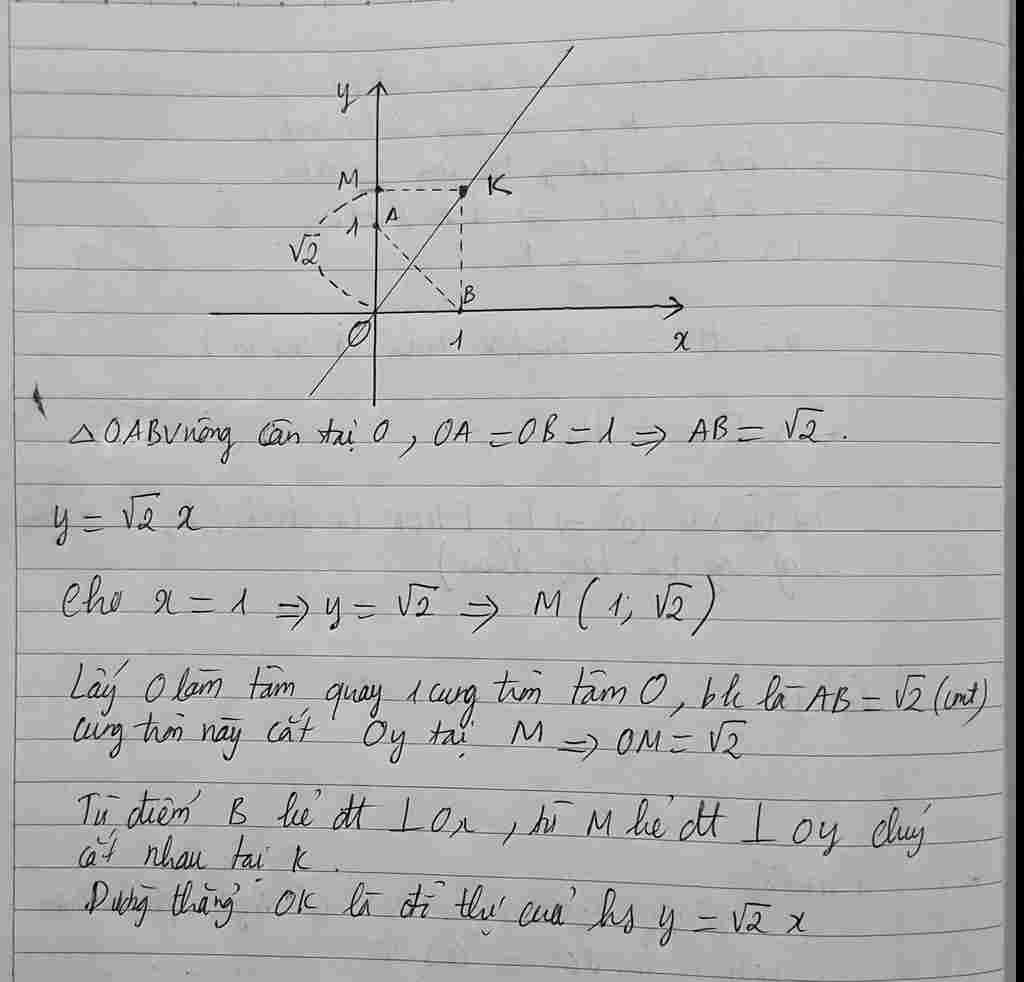 y
M
K
A
1
√2
B
O
1
x
△OAB vuông cân tại O, OA = OB = 1 ⇒ AB = √2.
y = √2 x
Cho x = 1 ⇒ y = √2 ⇒ M(1; √2)
Lấy O làm tâm quay 1 cung tròn tâm O, bk là AB = √2 (cm)
cung tròn này cắt Oy tại M ⇒ OM = √2
Từ điểm B kẻ đt ⊥ Ox, từ M kẻ đt ⊥ Oy chúng
cắt nhau tại K.
Đường thẳng OK là đồ thị của hs y = √2 x